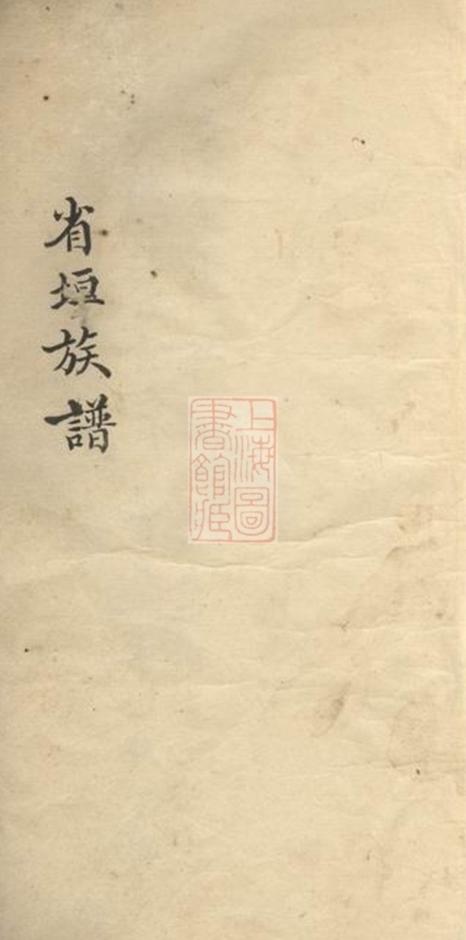 省垣族譜
上海圖
書館藏